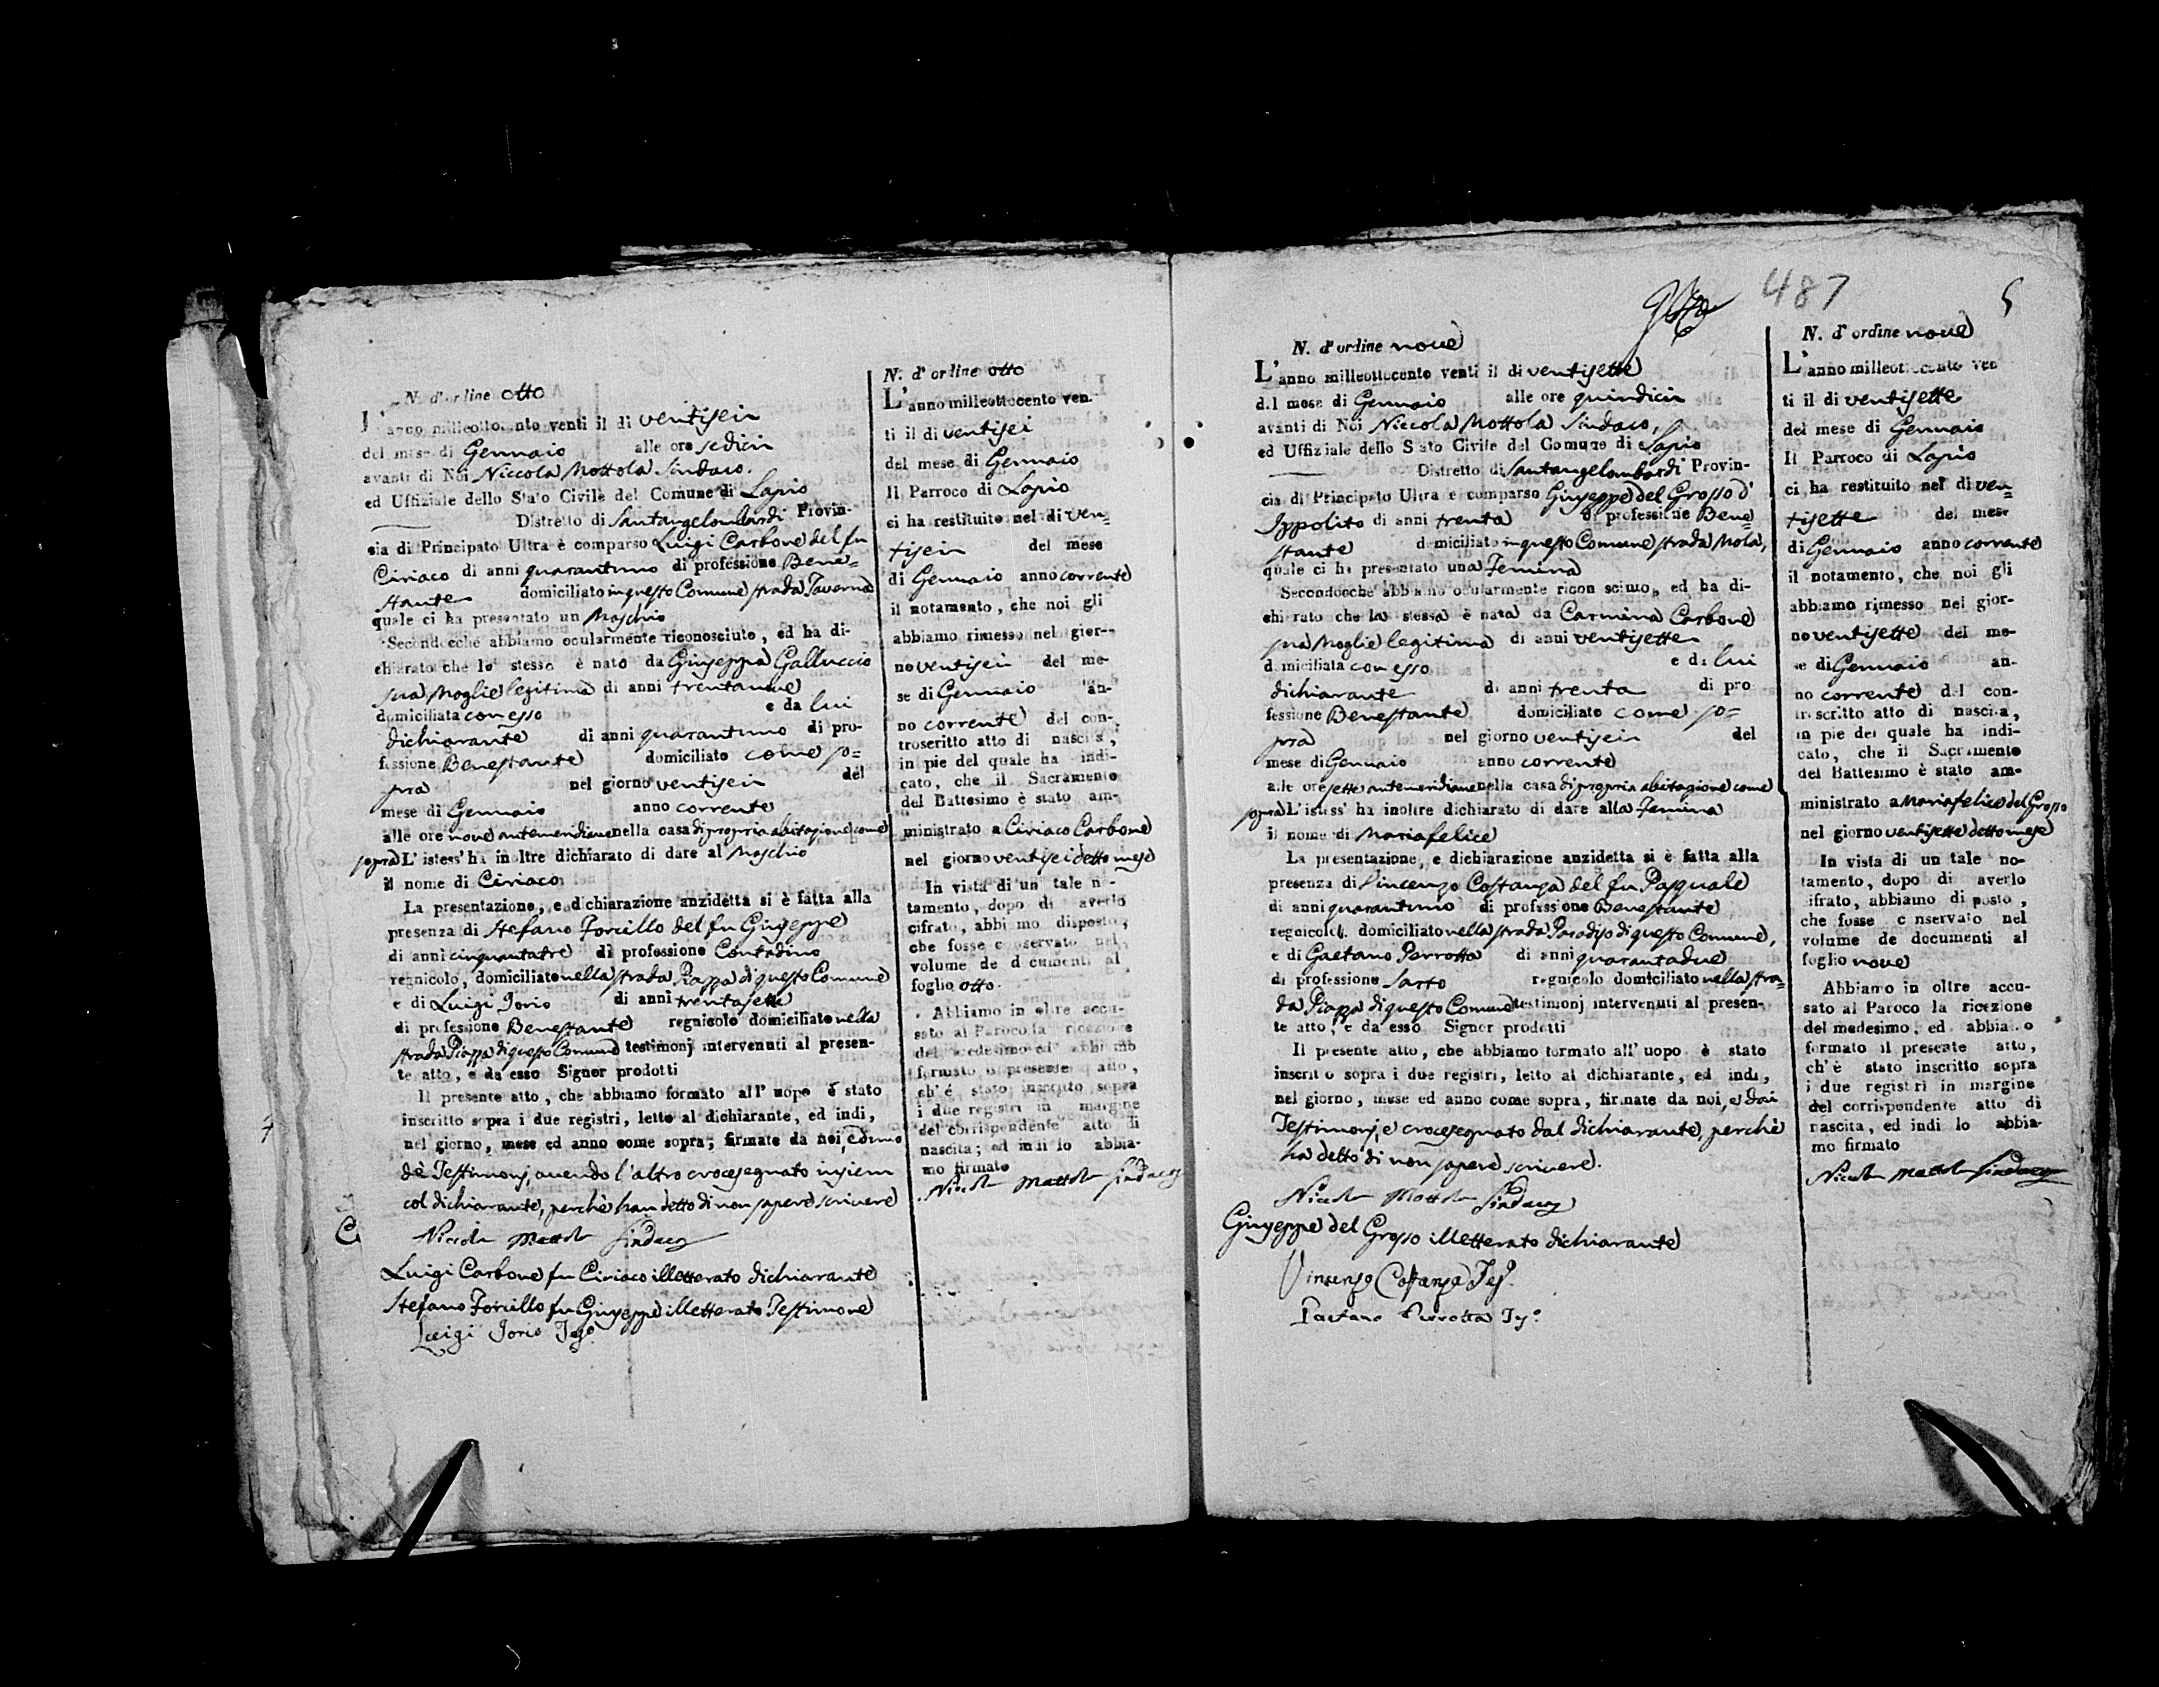 N. d'ordine otto
L'anno milleottocento venti il di ventisei
del mese di Gennaio alle ore sedici
avanti di Noi Niccola Mottola Sindaco.
ed Uffiziale dello Stato Civile del Comune di Lapio
Distretto di Santangelombardi Provin-
cia di Principato Ultra è comparso Luigi Carbone del fu
Ciriaco di anni quarantuno di professione Bene=
stante domiciliato in questo Comune strada Taverna
quale ci ha presentato un Maschio
Secondocchè abbiamo ocularmente riconosciuto, ed ha di-
chiarato che lo stesso è nato da Giuseppa Galluccio
sua Moglie legitima di anni trentanove
domiciliata con esso e da lui
dichiarante di anni quarantuno di pro-
fessione Benestante domiciliato come so=
pra nel giorno ventisei del
mese di Gennaio anno corrente
alle ore nove antemeridiane nella casa di propria abitazione come
sopra L'istess' ha inoltre dichiarato di dare al Maschio
il nome di Ciriaco
La presentazione, e dichiarazione anzidetta si è fatta alla
presenza di Stefano Forcillo del fu Giuseppe
di anni cinquantatre di professione Contadino
regnicolo, domiciliato nella strada Piazza di questo Comune
e di Luigi Iorio di anni trentasette
di professione Benestante regnicolo domiciliato nella
strada Piazza di questo Comune testimonj intervenuti al presen-
te atto, e da esso Signor prodotti
Il presente atto, che abbiamo formato all' uopo è stato
inscritto sopra i due registri, letto al dichiarante, ed indi,
nel giorno, mese ed anno come sopra; firmato da noi, ed uno
dè Testimonj, avendo l'altro crocesegnato insiem
col dichiarante, perchè han detto di non sapere scrivere
Niccola Mottola Sindaco
Luigi Carbone fu Ciriaco illetterato dichiarante
Stefano Forcillo fu Giuseppe illetterato Testimone
Luigi Iorio Tesº
N. d'ordine otto
L'anno milleottocento ven-
ti il di ventisei
del mese di Gennaio
Il Parroco di Lapio
ci ha restituito nel di ven=
tisei del mese
di Gennaio anno corrente
il notamento, che noi gli
abbiamo rimesso nel gior-
no ventisei del me-
se di Gennaio an-
no corrente del con-
troscritto atto di nascita,
in pie del quale ha indi-
cato, che il Sacramento
del Battesimo è stato am-
ministrato a Ciriaco Carbone
nel giorno ventisei detto mese
In vista di un tale no-
tamento, dopo di averlo
cifrato, abbiamo disposto,
che fosse conservato nel
volume de documenti al
foglio otto.
Abbiamo in oltre accu-
sato al Paroco la ricezione
del medesimo ed abbiamo
formato il presente atto,
ch'é stato inscritto sopra
i due registri in margine
del corrispondente atto di
nascita; ed indi lo abbia-
mo firmato
Niccola Mottola Sindaco
487
5
N. d'ordine nove
L'anno milleottocento venti il di ventisette
del mese di Gennaio alle ore quindici
avanti di Noi Niccola Mottola Sindaco,
ed Uffiziale dello Stato Civile del Comune di Lapio
Distretto di Santangelombardi Provin-
cia di Principato Ultra è comparso Giuseppe del Grosso d'
Ippolito di anni trenta di professione Bene=
stante domiciliato in questo Comune strada Mola,
quale ci ha presentato una Femina
Secondocchè abbiamo ocularmente riconosciuto, ed ha di-
chiarato che la stessa è nata da Carmina Carbone
sua Moglie legitima di anni ventisette
domiciliata con esso e da lui
dichiarante di anni trenta di pro
fessione Benestante domiciliato come so=
pra nel giorno ventisei del
mese di Gennaio anno corrente
alle ore sette antemeridiane nella casa di propria abitazione come
sopra L'istess' ha inoltre dichiarato di dare alla Femina
il nome di Mariafelice
La presentazione, e dichiarazione anzidetta si è fatta alla
presenza di Vincenzo Costanza del fu Pasquale
di anni quarantuno di professione Benestante
regnicolo, domiciliato nella strada Paradiso di questo Comune,
e di Gaetano Perrotta di anni quarantadue
di professione Sarto regnicolo domiciliato nella stra=
da Piazza di questo Comune testimonj intervenuti al presen-
te atto, e da esso Signor prodotti
Il presente atto, che abbiamo formato all' uopo è stato
inscritto sopra i due registri, letto al dichiarante, ed indi,
nel giorno, mese ed anno come sopra, firmato da noi, e dai
Testimonj, e crocesegnato dal dichiarante, perchè
ha detto di non sapere scrivere.
Niccola Mottola Sindaco
Giuseppe del Grosso illetterato dichiarante
Vincenzo Costanza Tesº
Gaetano Perrotta Tesº
N. d'ordine nove
L'anno milleottocento ven
ti il di ventisette
del mese di Gennaio
Il Parroco di Lapio
ci ha restituito nel di ven=
tisette del mese
di Gennaio anno corrente
il notamento, che noi gli
abbiamo rimesso nel gior-
no ventisette del me-
se di Gennaio an-
no corrente del con-
troscritto atto di nascita,
in pie del quale ha indi-
cato, che il Sacramento
del Battesimo è stato am-
ministrato a Mariafelice del Grosso
nel giorno ventisette detto mese
In vista di un tale no-
tamento, dopo di averlo
cifrato, abbiamo disposto,
che fosse conservato nel
volume de documenti al
foglio nove
Abbiamo in oltre accu-
sato al Paroco la ricezione
del medesimo, ed abbiamo
formato il presente atto,
ch'è stato inscritto sopra
i due registri in margine
del corrispondente atto di
nascita, ed indi lo abbia-
mo firmato
Niccola Mottola Sindaco